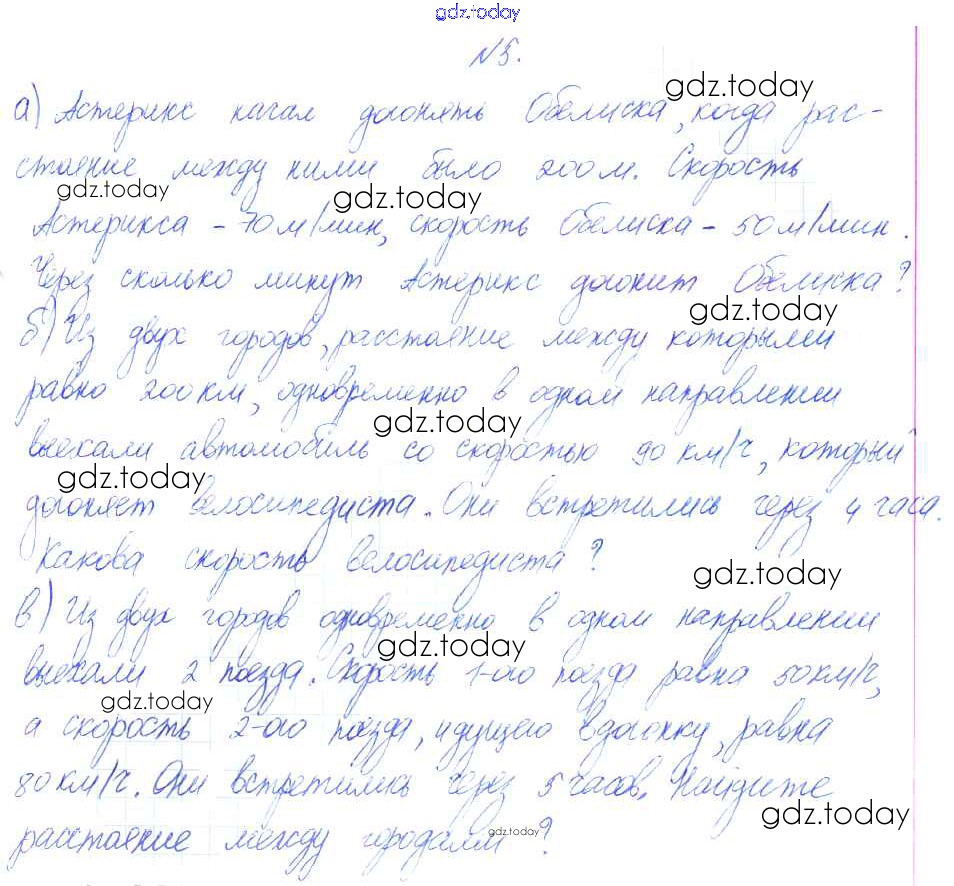 gdz.today
№5.
а) Астерикс начал догонять Обелиска, когда рас-
стояние между ними было 200 м. Скорость
Астерикса - 70 м/мин, скорость Обелиска - 50 м/мин.
Через сколько минут Астерикс догонит Обелиска?
б) Из двух городов, расстояние между которыми
равно 200 км, одновременно в одном направлении
выехали автомобиль со скоростью 90 км/ч, который
догоняет велосипедиста. Они встретились через 4 часа.
Какова скорость велосипедиста?
в) Из двух городов одновременно в одном направлении
выехали 2 поезда. Скорость 1-ого поезда равна 50 км/ч,
а скорость 2-ого поезда, идущего вдогонку, равна
80 км/ч. Они встретились через 5 часов. Найдите
расстояние между городами?
gdz.today
gdz.today
gdz.today
gdz.today
gdz.today
gdz.today
gdz.today
gdz.today
gdz.today
gdz.today
gdz.today